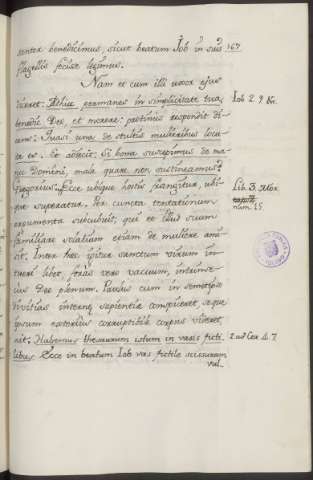 santer benedicimus, sicut beatum Iob in suis 167.
flagellis fecisse legimus.
Nam et cum illi uxor ejus
diceret: Adhuc permanes in simplicitate tua, Iob. 2. 9. &c.
benedic Deo, et morere: protinus respondit di-
cens: Quasi una de stultis mulieribus locu-
ta es. Et adjecit: Si bona suscepimus de ma-
nu Domini, mala quare non sustineamus?
Gregorius: Ecce ubique hostis frangitur, ubi- Lib. 3. Mor.
que superatur. Per cuncta tentationum num. 15.
argumenta subcubuit, qui et illud suum
familiare solatium etiam de muliere ami-
sit. Inter hæc igitur sanctum virum in-
tueri libet, foris rebus vacuum, intrinse-
cus Deo plenum. Paulus cum in semetipso
divitias internæ sapientiæ conspiceret seque
ipsum exterius corruptibile corpus videret,
ait: Habemus thesaurum istum in vasis ficti- 2. ad Cor. 4. 7.
libus. Ecce in beatum Iob vas fictile scissuram
vul-